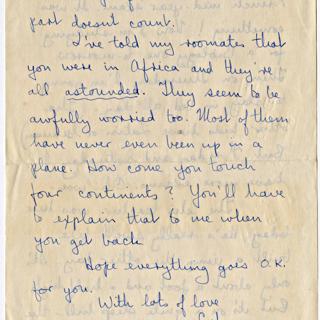 part doesnt count.
I've told my roomates that
you were in Africa and they're
all astounded. They seem to be
awfully worried too. Most of them
have never even been up in a
plane. How come you touch
four continents? You'll have
to explain that to me when
you get back
Hope everything goes O.K.
for you.
With lots of love